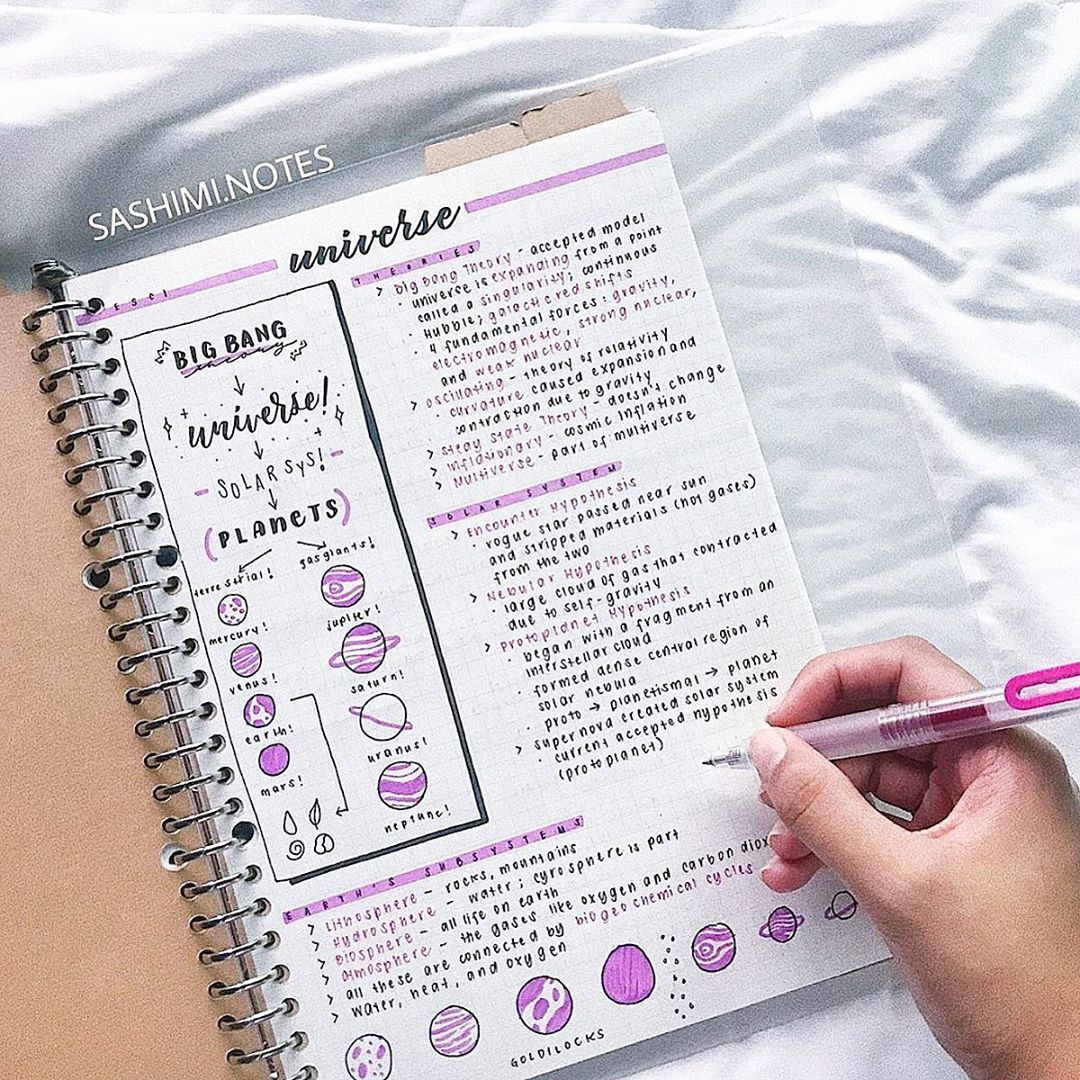 SASHIMI.NOTES
universe
ESCI
BIG BANG
theory
universe!
SOLAR SYS!
(PLANETS)
terrestrial!
gas giants!
mercury!
jupiter!
venus!
saturn!
earth!
uranus!
mars!
neptune!
THEORIES
> Big Bang Theory - accepted model
· universe is expanding from a point
called a singularity; continuous
· Hubble; galactic red shifts
· 4 fundamental forces: gravity,
electromagnetic, strong nuclear,
and weak nuclear
> oscillating - theory of relativity
· curvature caused expansion and
contraction due to gravity
> Steay State Theory - doesn't change
> Inflasionary - cosmic inflation
> Multiverse - part of multiverse
SOLAR SYSTEM
> Encounter Hypothesis
· rogue star passed near sun
and stripped materials (hot gases)
from the two
> Nebular Hypothesis
· large cloud of gas that contracted
due to self-gravity
> Protoplanet Hypothesis
· began with a fragment from an
interstellar cloud
· formed dense central region of
solar nebula
· proto → planetismal → planet
> supernova created solar system
· current accepted hypothesis
(protoplanet)
EARTH'S SUBSYSTEMS
> Lithosphere - rocks, mountains
> Hydrosphere - water; cyrosphere is part
> Biosphere - all life on earth
> Atmosphere - the gases like oxygen and carbon diox
> all these are connected by biogeochemical cycles
> water, heat, and oxygen
GOLDILOCKS